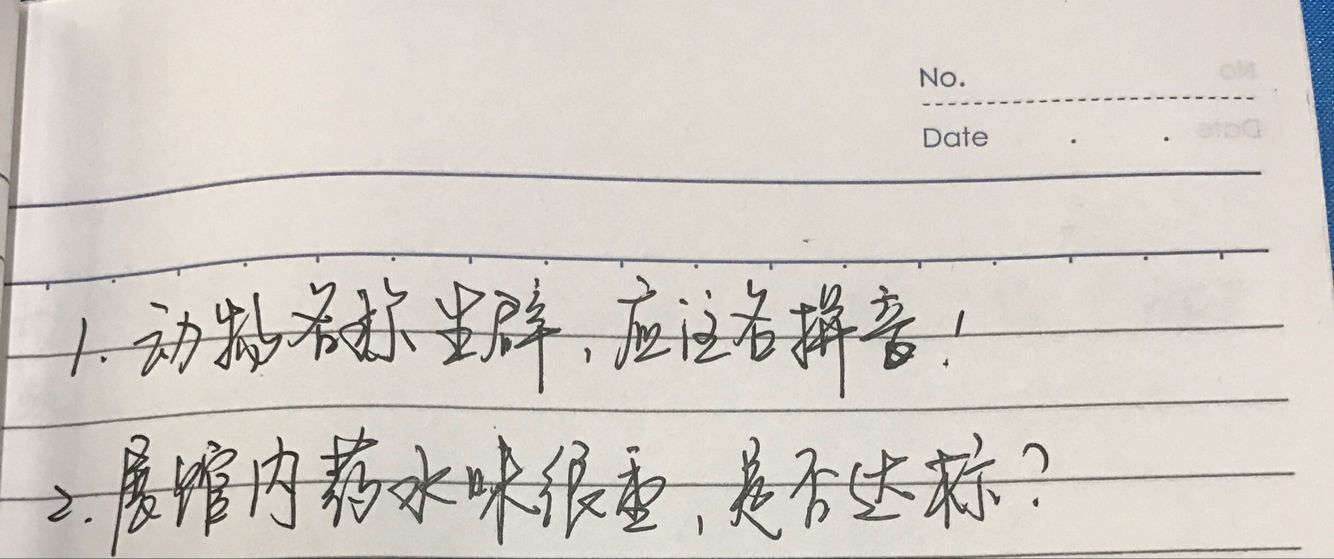 No.
Date
1. 动物名称生僻，应注名拼音！
2. 展馆内药水味很重，是否达标？